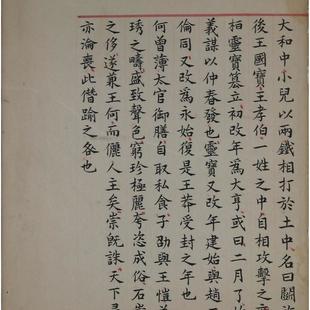 大和中小兒以兩鐵相打於土中名曰鬬
後王國寶王孝伯一姓之中自相攻擊之
桓靈寶篡立初改年為大亨或曰二月了
義謀以仲春發也靈寶又改年建始與趙王
倫同又改為永始復是王莽受封之年也
何曾薄太官御膳自取私食子劭與王愷
琇之疇盛致聲色窮珍極麗夸恣成俗石崇
之侈遂兼王何而儷人主矣崇既誅天下尋
亦淪喪此僭踰之咎也